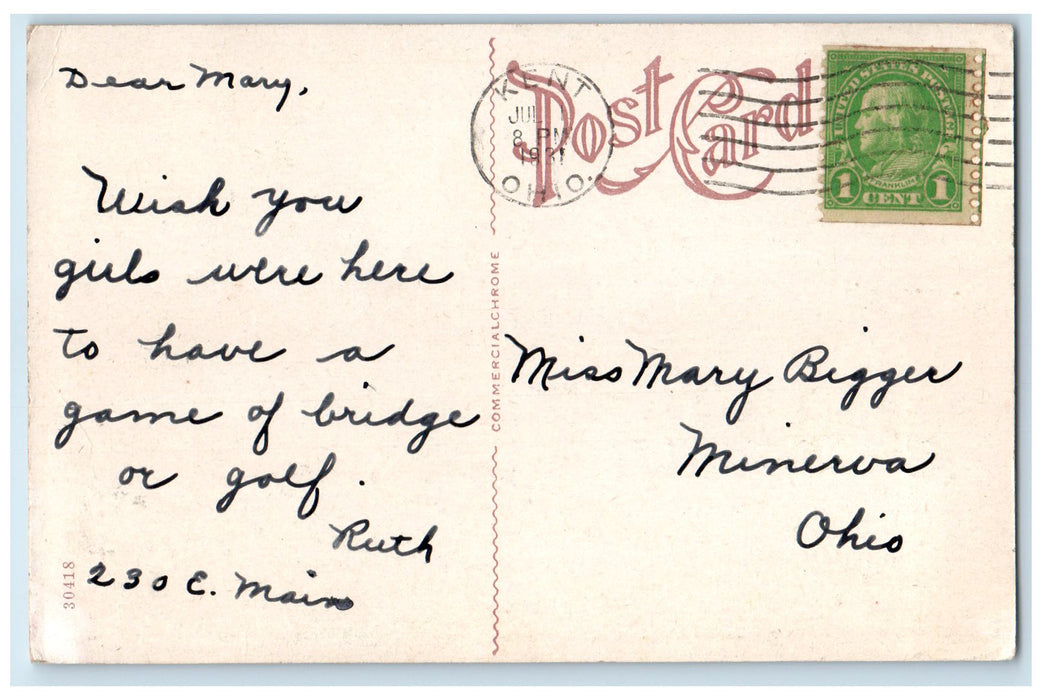 Dear Mary,
Wish you
girls were here
to have a
game of bridge
or golf.
Ruth
230 E. Main
30418
COMMERCIALCHROME
Post Card
KENT
JUL
8 PM
1931
OHIO.
UNITED STATES POSTAGE
FRANKLIN
1 CENT 1
Miss Mary Bigger
Minerva
Ohio